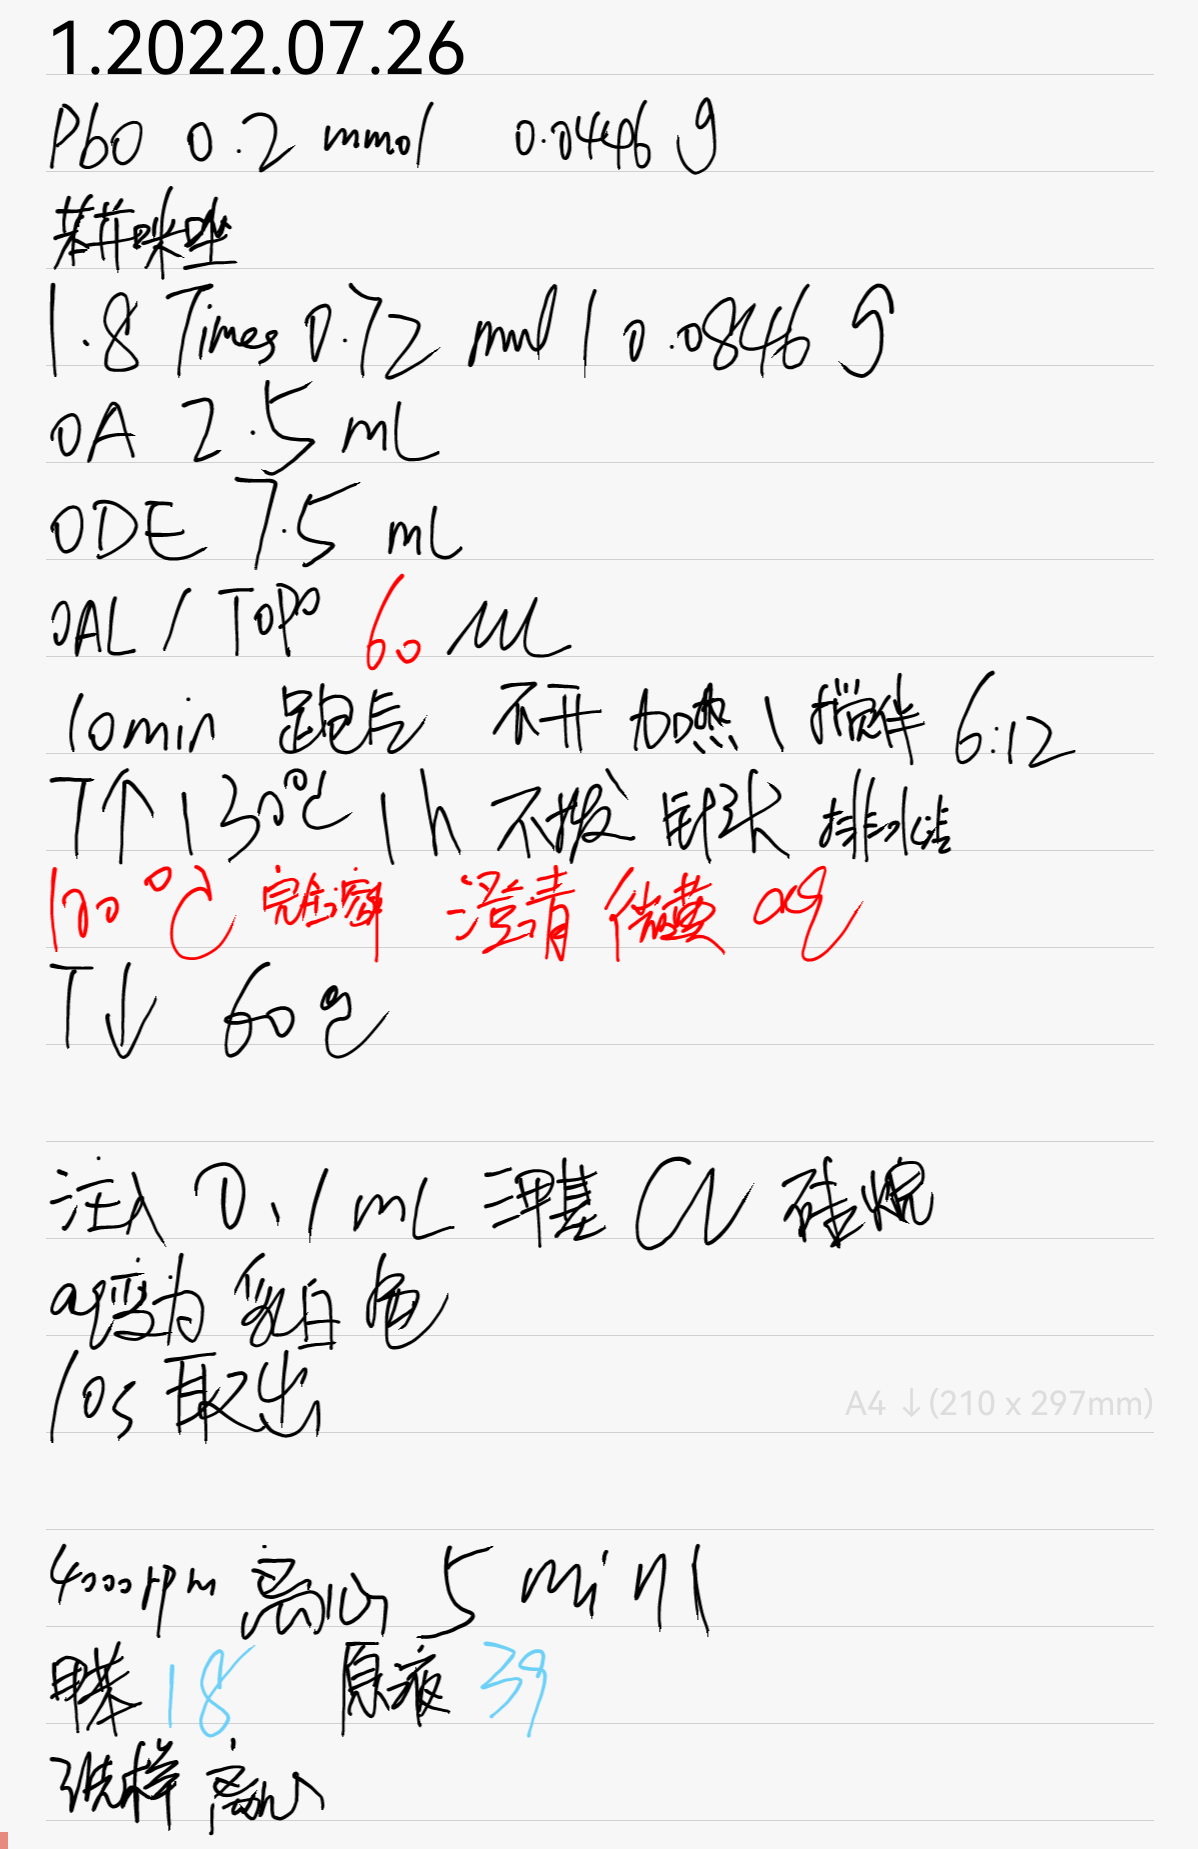 1.2022.07.26
PbO 0.2 mmol 0.0446 g
苯并咪唑
1.8 Times 0.72 mmol / 0.0846 g
OA 2.5 mL
ODE 7.5 mL
OAL / TOPO 60 μL
10min 跑后 不开加热 \ 搅拌 6:12
T个 130℃ 1h 不拨针头 排水法
100℃ 完全溶解 澄清 微黄 aq
T↓ 60℃
注入 0.1mL 三甲基 Cl 硅烷
aq变为乳白色
10s 取出
A4 ↓(210 x 297mm)
4000rpm 离心 5 min \
甲苯 18 原液 39
洗样 离心